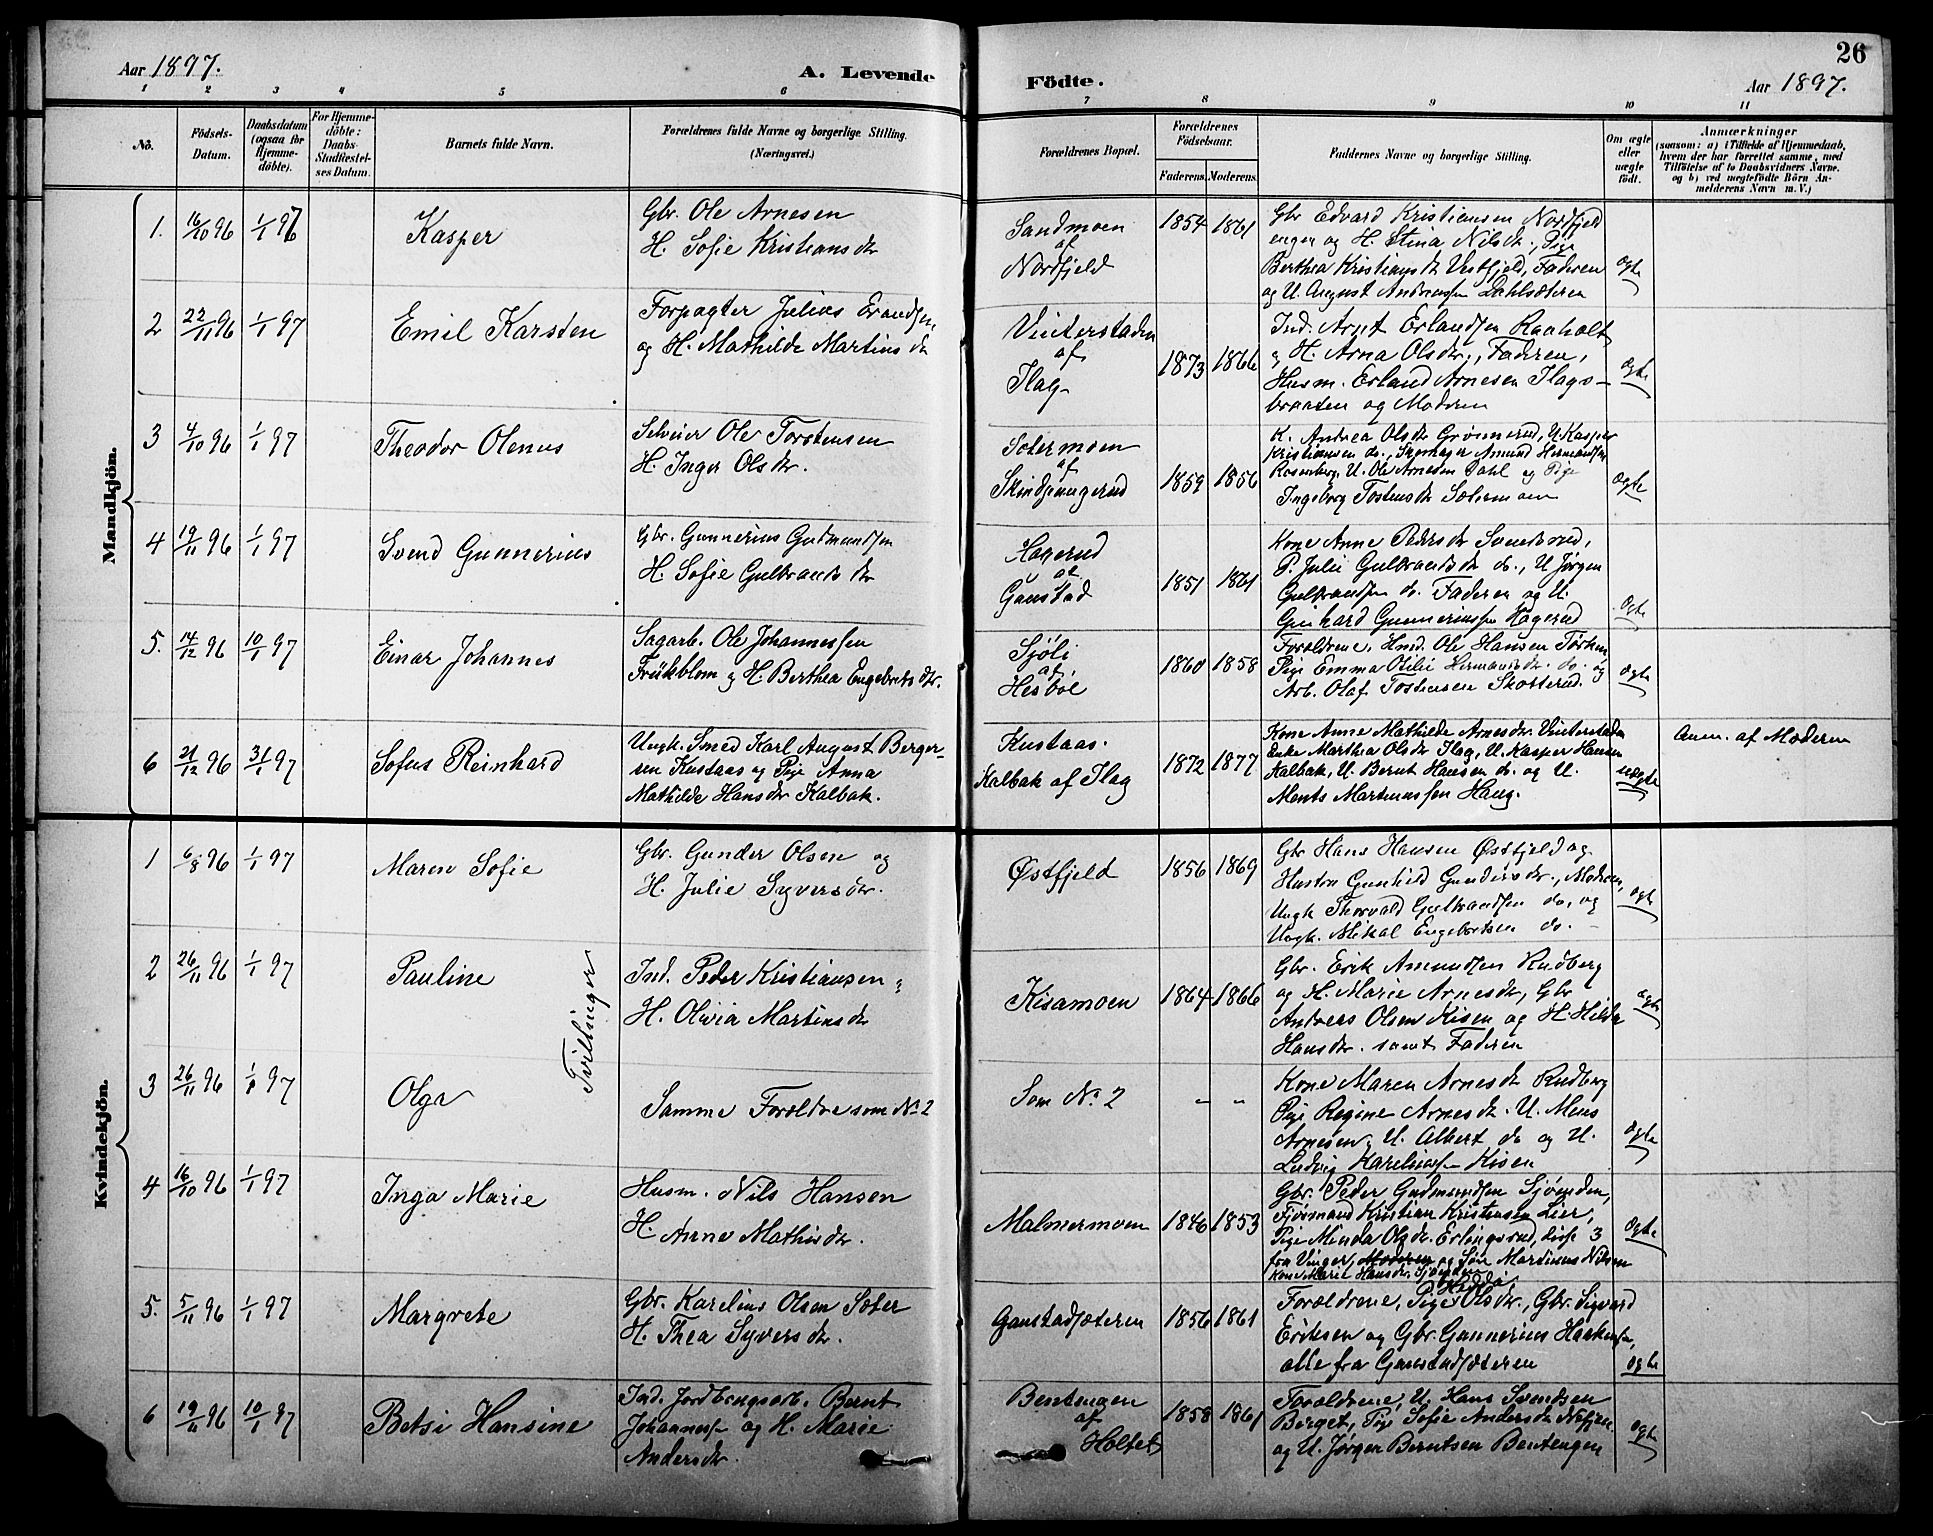 26
Aar 1897.
A. Levende Födte.
Aar 1897.
1 2 3 4 5 6 7 8 9 10 11
No.
Födsels-Datum.
Daabsdatum (ogsaa for Hjemmedöbte).
For Hjemmedöbte: Daabs-Stadfæstelses Datum.
Barnets fulde Navn.
Forældrenes fulde Navne og borgerlige Stilling. (Næringsvei.)
Forældrenes Bopæl.
Forældrenes Födselsaar.
Faderens. Moderens.
Faddernes Navne og borgerlige Stilling.
Om ægte eller uægte födt.
Anmærkninger (saasom: a) i Tilfælde af Hjemmedaab, hvem der har forrettet samme, med Tilföielse af to Daabsvidners Navne. og b) ved uægtefödte Börn Anmelderens Navn m. V.)
Mandkjön.
1. 16/10 96 1/1 97 Kasper
Gbr. Ole Arnesen
H. Sofie Kristiansdr
Sandmoen
af
Nordfjeld
1854 1861
Gbr Edvard Kristiansen Nordfjeld
engen og H. Stina Nilsdr., Pige
Berthea Kristiansdr Vestfjeld, Faderen
og U. August Andreassen Dahlsæteren
ægte
2 22/11 96 1/1 97 Emil Karsten
Forpagter Julius Erandsen
og H. Mathilde Martinsdr
Vinterstaden
af
Ilag
1873 1866
Ind. Arnt Erlandsen Raaholt
og H. Arna Olsdr., Faderen,
Husm. Erland Arnesen Ilags-
braaten og Moderen
ægte
3 4/10 96 1/1 97 Theodor Olenus
Selveier Ole Torstensen
H. Inger Olsdr.
Sætermoen
af
Skindpungerud
1859 1856
K. Andrea Olsdr Grønnerud, U. Kasper
Kristiansen do., Skomager Amund Hermandsen
Rosenberg, U. Ole Arnesen Dahl og Pige
Ingeborg Tostensdr Sætermoen
ægte
4 19/11 96 1/1 97 Svend Gunnerius
Gbr. Gunnerius Gudmundsen
H. Sofie Gulbrandsdr
Hagerud
af
Gaustad
1851 1861
Kone Anne Pedersdr Svendsrud,
P. Julie Gulbrandsdr do., U Jørgen
Gulbrandsen do. Faderen og U.
Gerhard Gunneriussen Hagerud
ægte
5. 14/12 96 10/1 97 Einar Johannes
Sagarb. Ole Johannessen
Frükblom og H. Berthea Engebretsdr.
Sjöli
af
Hesböl
1860 1858
Forældrene, Hmd. Ole Hansen Tørken
Pige Emma Otilie Hermansdr. do. og
Arb. Olaf Tostensen Skotterud.
ægte
6 21/12 96 31/1 97 Sofus Reinhard
Ungk. Smed Karl August Berger-
sen Kustaas og Pige Anna
Mathilde Hansdr Kalbak.
Kustaas.
Kalbak af Ilag
1872 1877
Kone Anne Mathilde Arnesdr. Vinterstaden
Enke Marthea Olsdr Ilag, U. Kasper Hansen
Kalbak, U. Bernt Hansen do. og U.
Ments Martinussen Haug.
uægte
Anm. af Moderen
Kvindekjön.
1 6/8 96 1/1 97 Maren Sofie
Gbr. Gunder Olsen og
H. Julie Syversdr.
Østfjeld
1856 1869
Gbr Hans Hansen Østfjeld og
Hustru Gunhild Gundersdr., Moderen,
Ungk. Thorvald Gulbrandsen do. og
Ungk. Mikal Engebretsen do.
ægte
2 26/11 96 1/1 97 Pauline
Tvillinger
Ind. Peder Kristiansen
H. Olivia Martinsdr
Kisamoen
1864 1866
Gbr. Erik Amundsen Rudberg
og H. Marie Arnesdr, Gbr
Andreas Olsen Kisen og H. Hilda
Hansdr. samt Faderen
ægte
3 26/11 96 1/1 97 Olga
Samme Forældre som No. 2
Som No. 2
" "
Kone Maren Arnesdr Rudberg
Pige Regine Arnesdr. U. Mens
Arnesen, U. Albert do og U.
Ludvig Kareliussen Kisen
ægte
4 16/10 96 1/1 97 Inga Marie
Husm. Nils Hansen
H Anne Mathisdr.
Malmermoen
1846 1853
Gbr. Peder Gudmundsen Sjøenden,
Fjörmand Kristian Kristensen Lier,
Pige Minda Olsdr. Erlingsrud, disse 3
fra Vinger, Moderen og Søn Martinus Nilsen
Kone Marie Hansdr. Sjøenden
ægte
5. 5/11 96 1/1 97 Margrete
Gbr. Karelius Olsen Sæter
H. Thea Syversdr.
Gaustadsæteren
1856 1861
Forældrene, Pige Hilda Olsdr., Gbr. Sigvard
Eriksen og Gbr. Gunnerius Haakensen,
alle fra Gaustadsæteren
ægte
6 19/11 96 10/1 97 Betsi Hansine
Ind. Jordbrugsarb. Bernt
Johannesen og H. Marie
Andersdr.
Bentengen
af
Holtet
1858 1861
Forældrene, U. Hans Svendsen
Berget, Pige Sofie Andersdr
og U. Jørgen Berntsen Bentengen
ægte